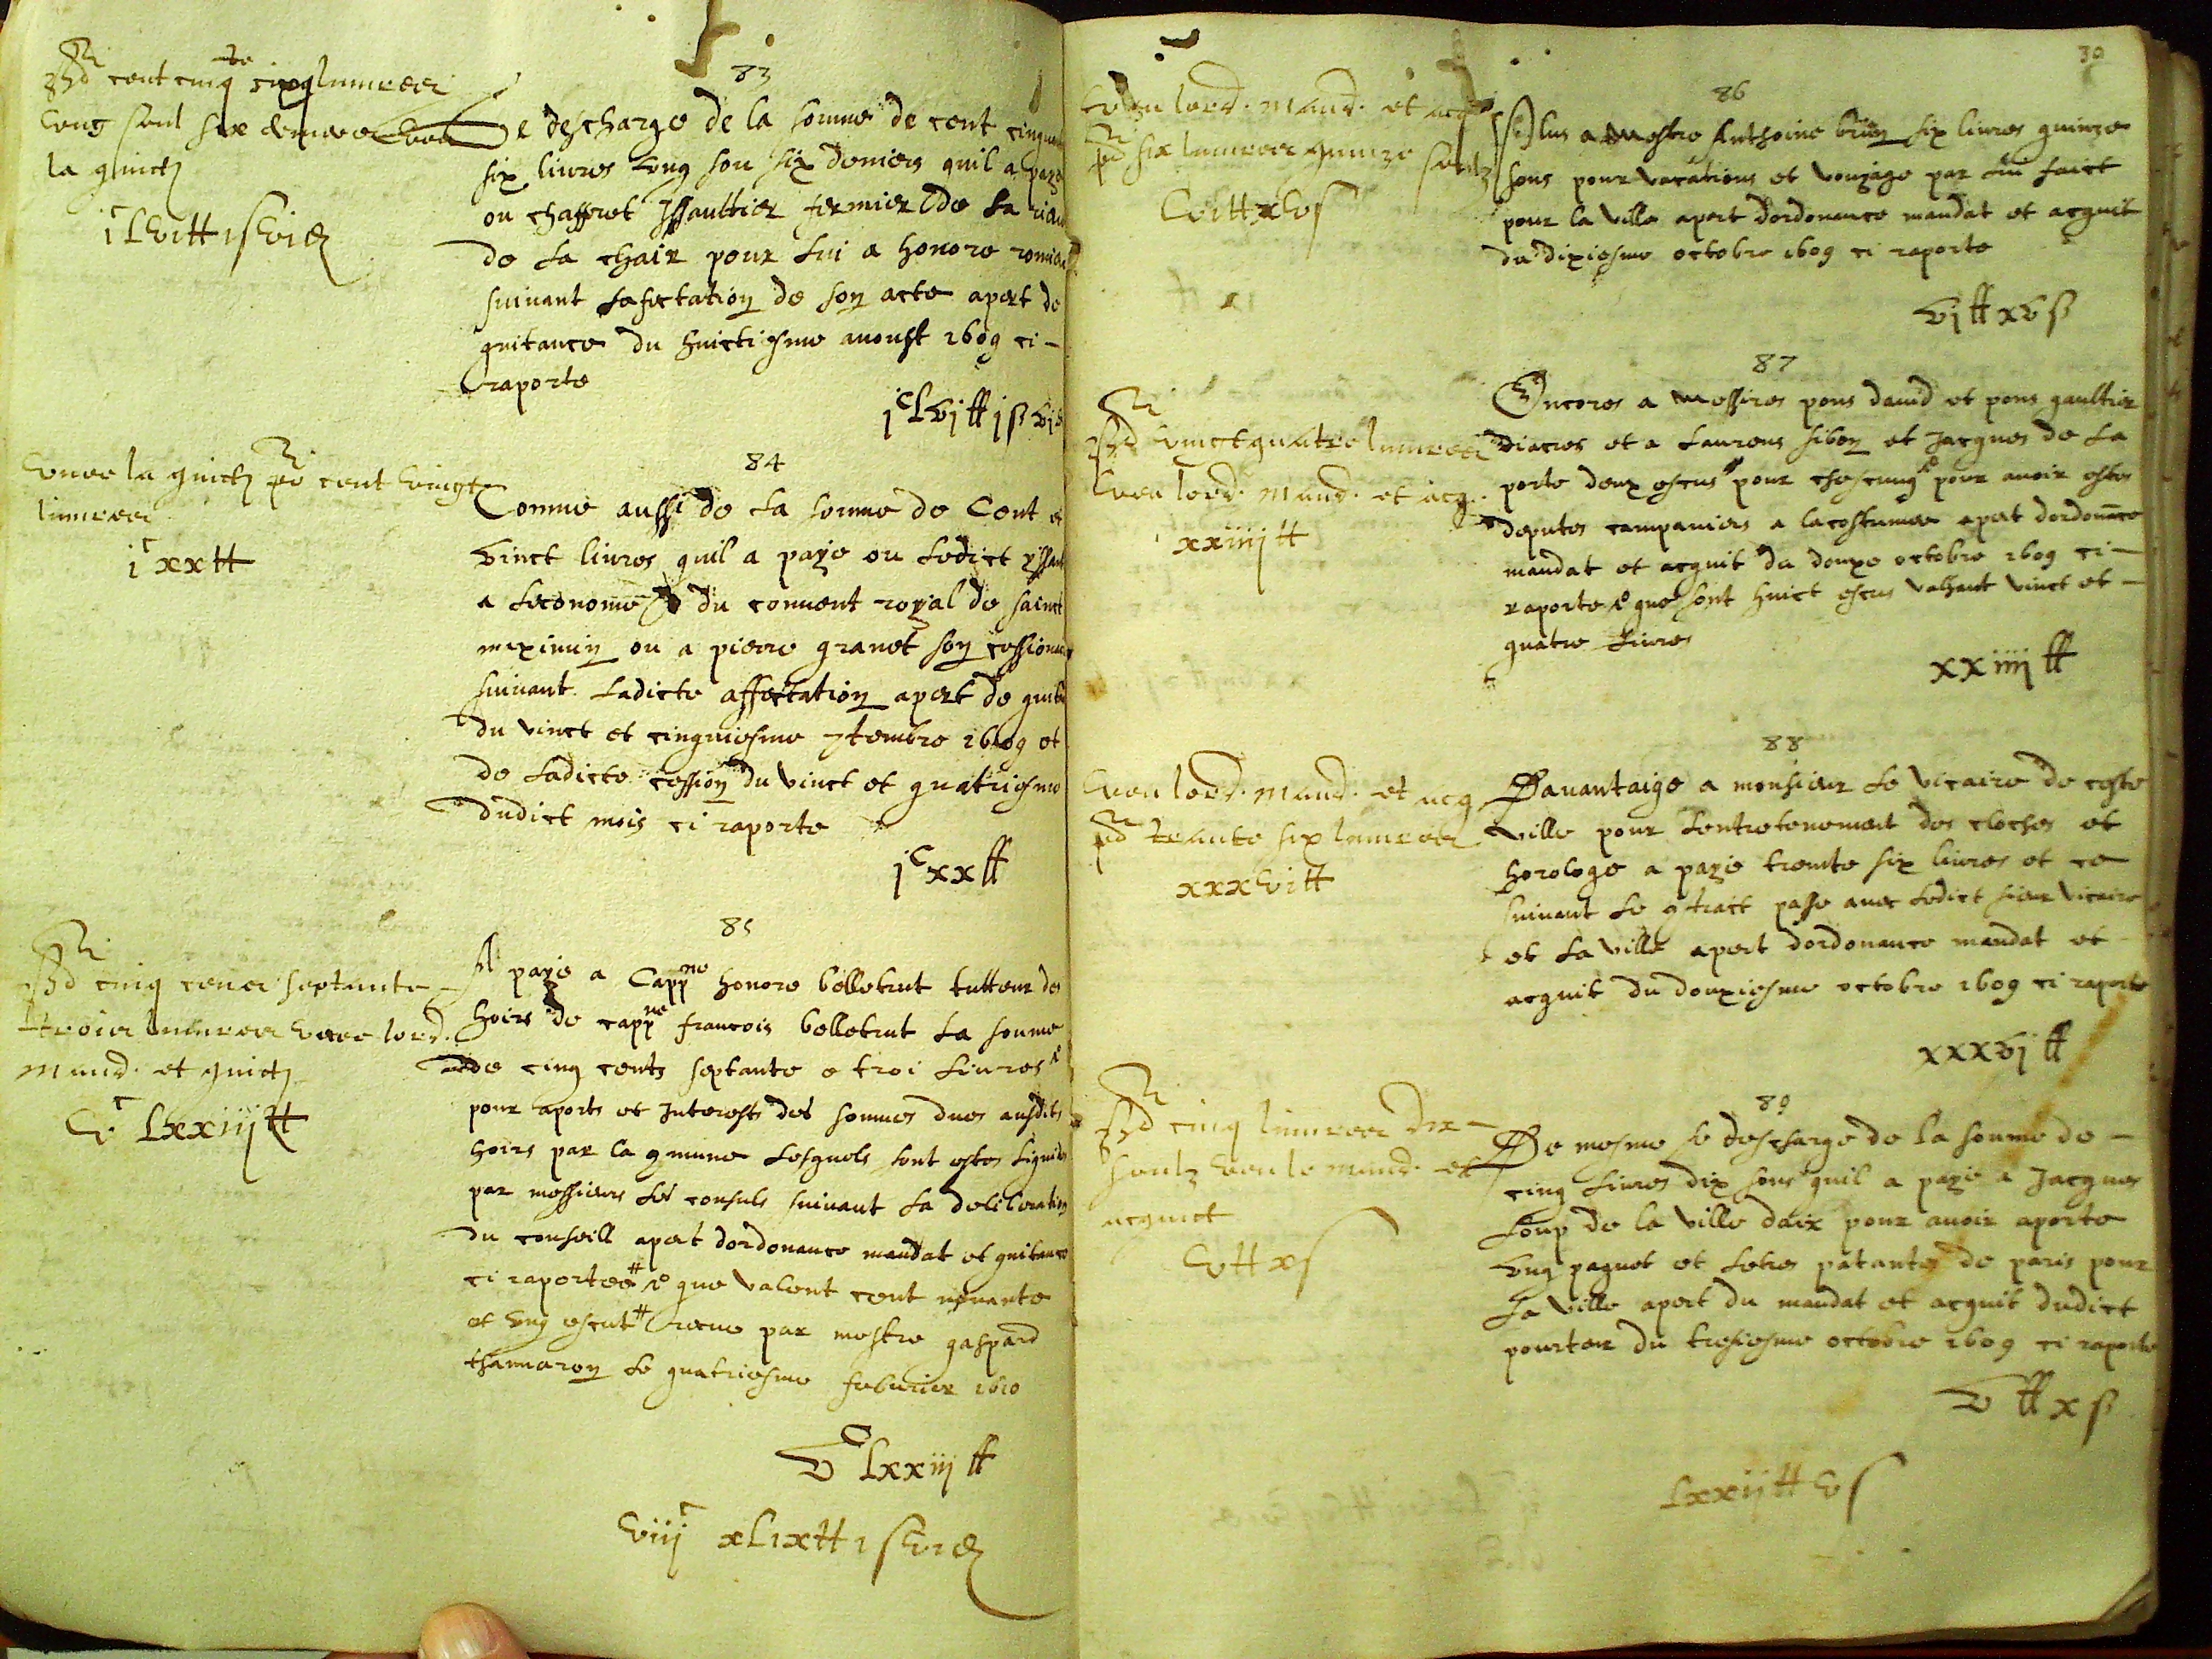 83
cent cinq^te six livres
ung soul six deniers veu
la quict
j^c Lvi tt i s vi d
Se descharge de la somme de cent cinquante
six livres ung sou six deniers quil a paye
ou chaffret Issaultier fermier de la
de la chair pour lui a honore
suivant lafectation de son acte apert de
quitance du huictiesme aoust 1609 ci –
raporte
j^c Lvj tt j s vj d
84
veue la quict cent vingt
livres
j^c xx tt
Comme aussi de la somme de Cent et
vinct livres quil a paye ou ledict
a leconome du couvent royal de sainct
maximin ou a pierre granet son cessionaire
suivant ladicte affectation apert de quitance
du vinct et cinquiesme 7tembre 1609 et
de ladicte cession du vinct et quatriesme
dudict mois ci raporte
j^c xx tt
85
cinq cens septante
trois livres veue lord.
mand. et quict
v^c Lxxiij tt
A paye a Capp^ne honore belletrut tutteur des
hoirs de capp^ne francois belletrut la somme
de cinq cents septante e troi livres
pour aports et Interests des sommes dues ausdits
hoirs par la comune lesquels sont estes liquides
par messieurs les consuls suivant la deliberation
du conseill apert dordonance mandat et quitance
ci raportee # que valent cent nonante
et ung escut # receue par mestre gaspard
chammaron le quatriesme febvrier 1610
v^c Lxxiij tt
viij^c xLix tt i s vi d
30
86
veu lord. mand. et acq
six livres quinze soulz
vi tt xv s
Plus a Mestre Anthoine brun six livres quinze
sous pour vacations et vouyage par lui faict
pour la ville apert dordonance mandat et acquit
du dixiesme octobre 1609 ci raporte
vj tt xv s
87
vinct quatre livres
veu lord. mand. et acq.
xxiiij tt
Encores a messires pons david et pons gaultier
diacres et a Laurens sibon et Jacques de la
porte deux escus pour chescung pour avoir estes
deputes campaniers a lacostumee apert dordonance
mandat et acquit du douxe octobre 1609 ci –
raporte que sont huict escus valhant vinct et –
quatre livres
xxiiij tt
88
veu lord. mand. et acq
trante six livres
xxxvi tt
Davantaige a monsieur le vicaire de ceste
ville pour lentretenement des cloches et
horologe a paye trente six livres et ce
suivant le contract passe avec ledict sieur vicaire
et la ville apert dordonance mandat et
acquit du douxiesme octobre 1609 ci raporte
xxxvj tt
89
cinq livres dix –
soulz veu le mand. et
acquict
v tt x s
De mesme se descharge de la somme de –
cinq livres dix sous quil a paye a Jacques
Loup de la ville daix pour avoir aporte
ung paquet et letres patantes de paris pour
la ville apert du mandat et acquit dudict
pourteur du tresiesme octobre 1609 ci raporte
v tt x s
Lxxij tt v s